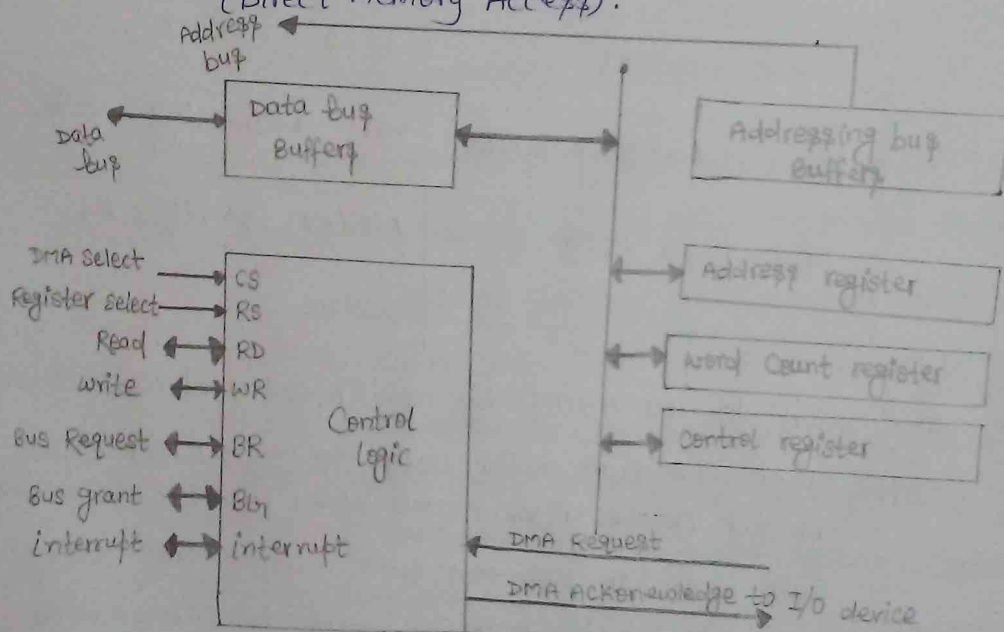 (Direct Memory Access).
Address
bus
Data bus
Buffers
Data
bus
Addressing bus
Buffers
DMA Select
CS
Register select
RS
Read
RD
write
WR
Bus Request
BR
Bus grant
BG
interrupt
interrupt
Control
logic
Address register
word Count register
control register
DMA Request
DMA ACKonewledge to I/O device